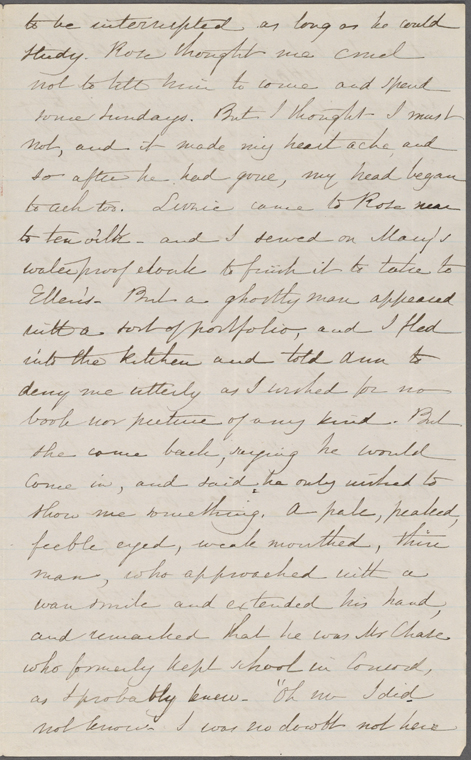 to be interrupted as long as he could
study. Rose thought me cruel
not to tell him to come and spend
some Sundays. But I thought I must
not, and it made my heart ache and
so after he had gone, my head began
to ache too. Lizzie came to Rose near
to ten o'clk - and I sewed on Mary's
waterproof cloak to finish it to take to
Ellen's - But a ghostly man appeared
with a sort of portfolio, and I fled
into the kitchen and told Ann to
deny me utterly as I wished for no
book nor picture of any kind. But
she came back, saying he would
come in, and said he only wished to
show me something. A pale, peaked,
feeble eyed, weak mouthed, thin
man, who approached with a
wan smile and extended his hand,
and remarked that he was Mr Chase
who formerly kept school in Concord,
as I probably knew - "Oh no I did
not know" I was no doubt not here